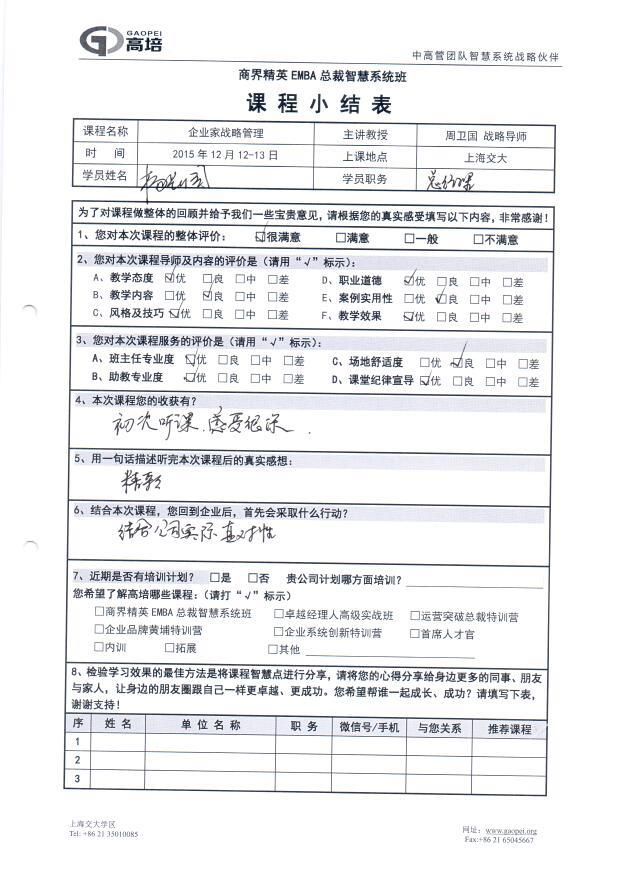 GAOPEI
高培
中高营团队智慧系统战略伙伴
商界精英 EMBA 总裁智慧系统班
课 程 小 结 表
课程名称 企业家战略管理 主讲教授 周卫国 战略导师
时 间 2015 年 12 月 12-13 日 上课地点 上海交大
学员姓名 学员职务 总经理
为了对课程做整体的回顾并给予我们一些宝贵意见，请根据您的真实感受填写以下内容，非常感谢！
1、您对本次课程的整体评价： ☑很满意 □满意 □一般 □不满意
2、您对本次课程导师及内容的评价是(请用“√”标示)：
A、教学态度 ☑优 □良 □中 □差 D、职业道德 ☑优 □良 □中 □差
B、教学内容 □优 ☑良 □中 □差 E、案例实用性 □优 ☑良 □中 □差
C、风格及技巧 ☑优 □良 □中 □差 F、教学效果 ☑优 □良 □中 □差
3、您对本次课程服务的评价是(请用“√”标示)：
A、班主任专业度 ☑优 □良 □中 □差 C、场地舒适度 □优 ☑良 □中 □差
B、助教专业度 ☑优 □良 □中 □差 D、课堂纪律宣导 ☑优 □良 □中 □差
4、本次课程您的收获有？
初次听课，感受很深．
5、用一句话描述听完本次课程后的真实感想：
精彩
6、结合本次课程，您回到企业后，首先会采取什么行动？
结合公司实际 对性
7、近期是否有培训计划？ □是 □否 贵公司计划哪方面培训？
您希望了解高培哪些课程：(请打“√”标示)
□商界精英 EMBA 总裁智慧系统班 □卓越经理人高级实战班 □运营突破总裁特训营
□企业品牌黄埔特训营 □企业系统创新特训营 □首席人才官
□内训 □拓展 □其他
8、检验学习效果的最佳方法是将课程智慧点进行分享，请将您的心得分享给身边更多的同事、朋友
与家人，让身边的朋友圈跟自己一样更卓越、更成功。您希望帮谁一起成长、成功？请填写下表，
谢谢支持！
序 姓 名 单 位 名 称 职 务 微信号/手机 与您关系 推荐课程
1
2
3
上海交大学区
Tel: +86 21 35010085
网址：www.gaopei.org
Fax:+86 21 65045667